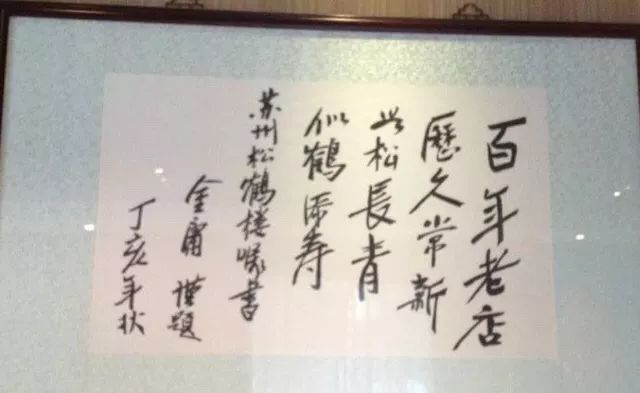 百年老店
歷久常新
共松長青
似鶴添寿
苏州松鶴楼嘱書
金庸 謹題
丁亥年秋